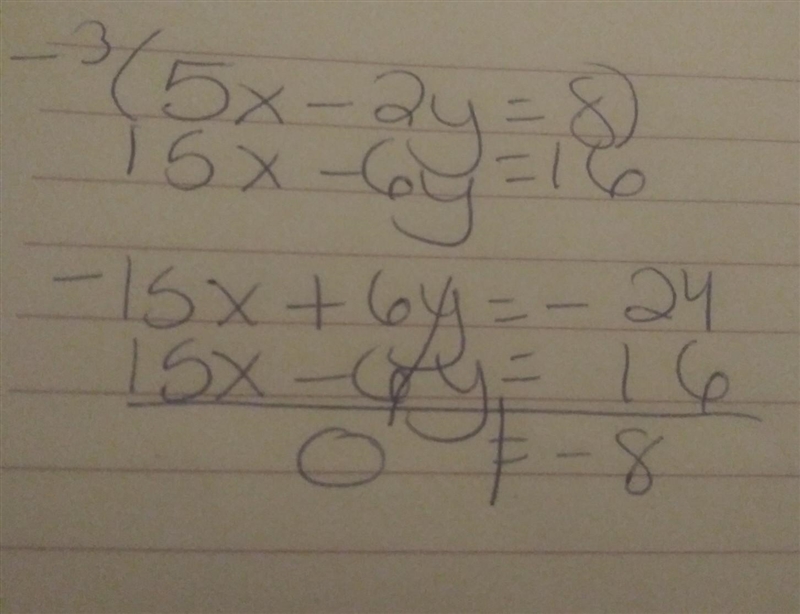 -3(5x - 2y = 8)
15x - 6y = 16
-15x + 6y = - 24
15x - 6y = 16
0 ≠ - 8